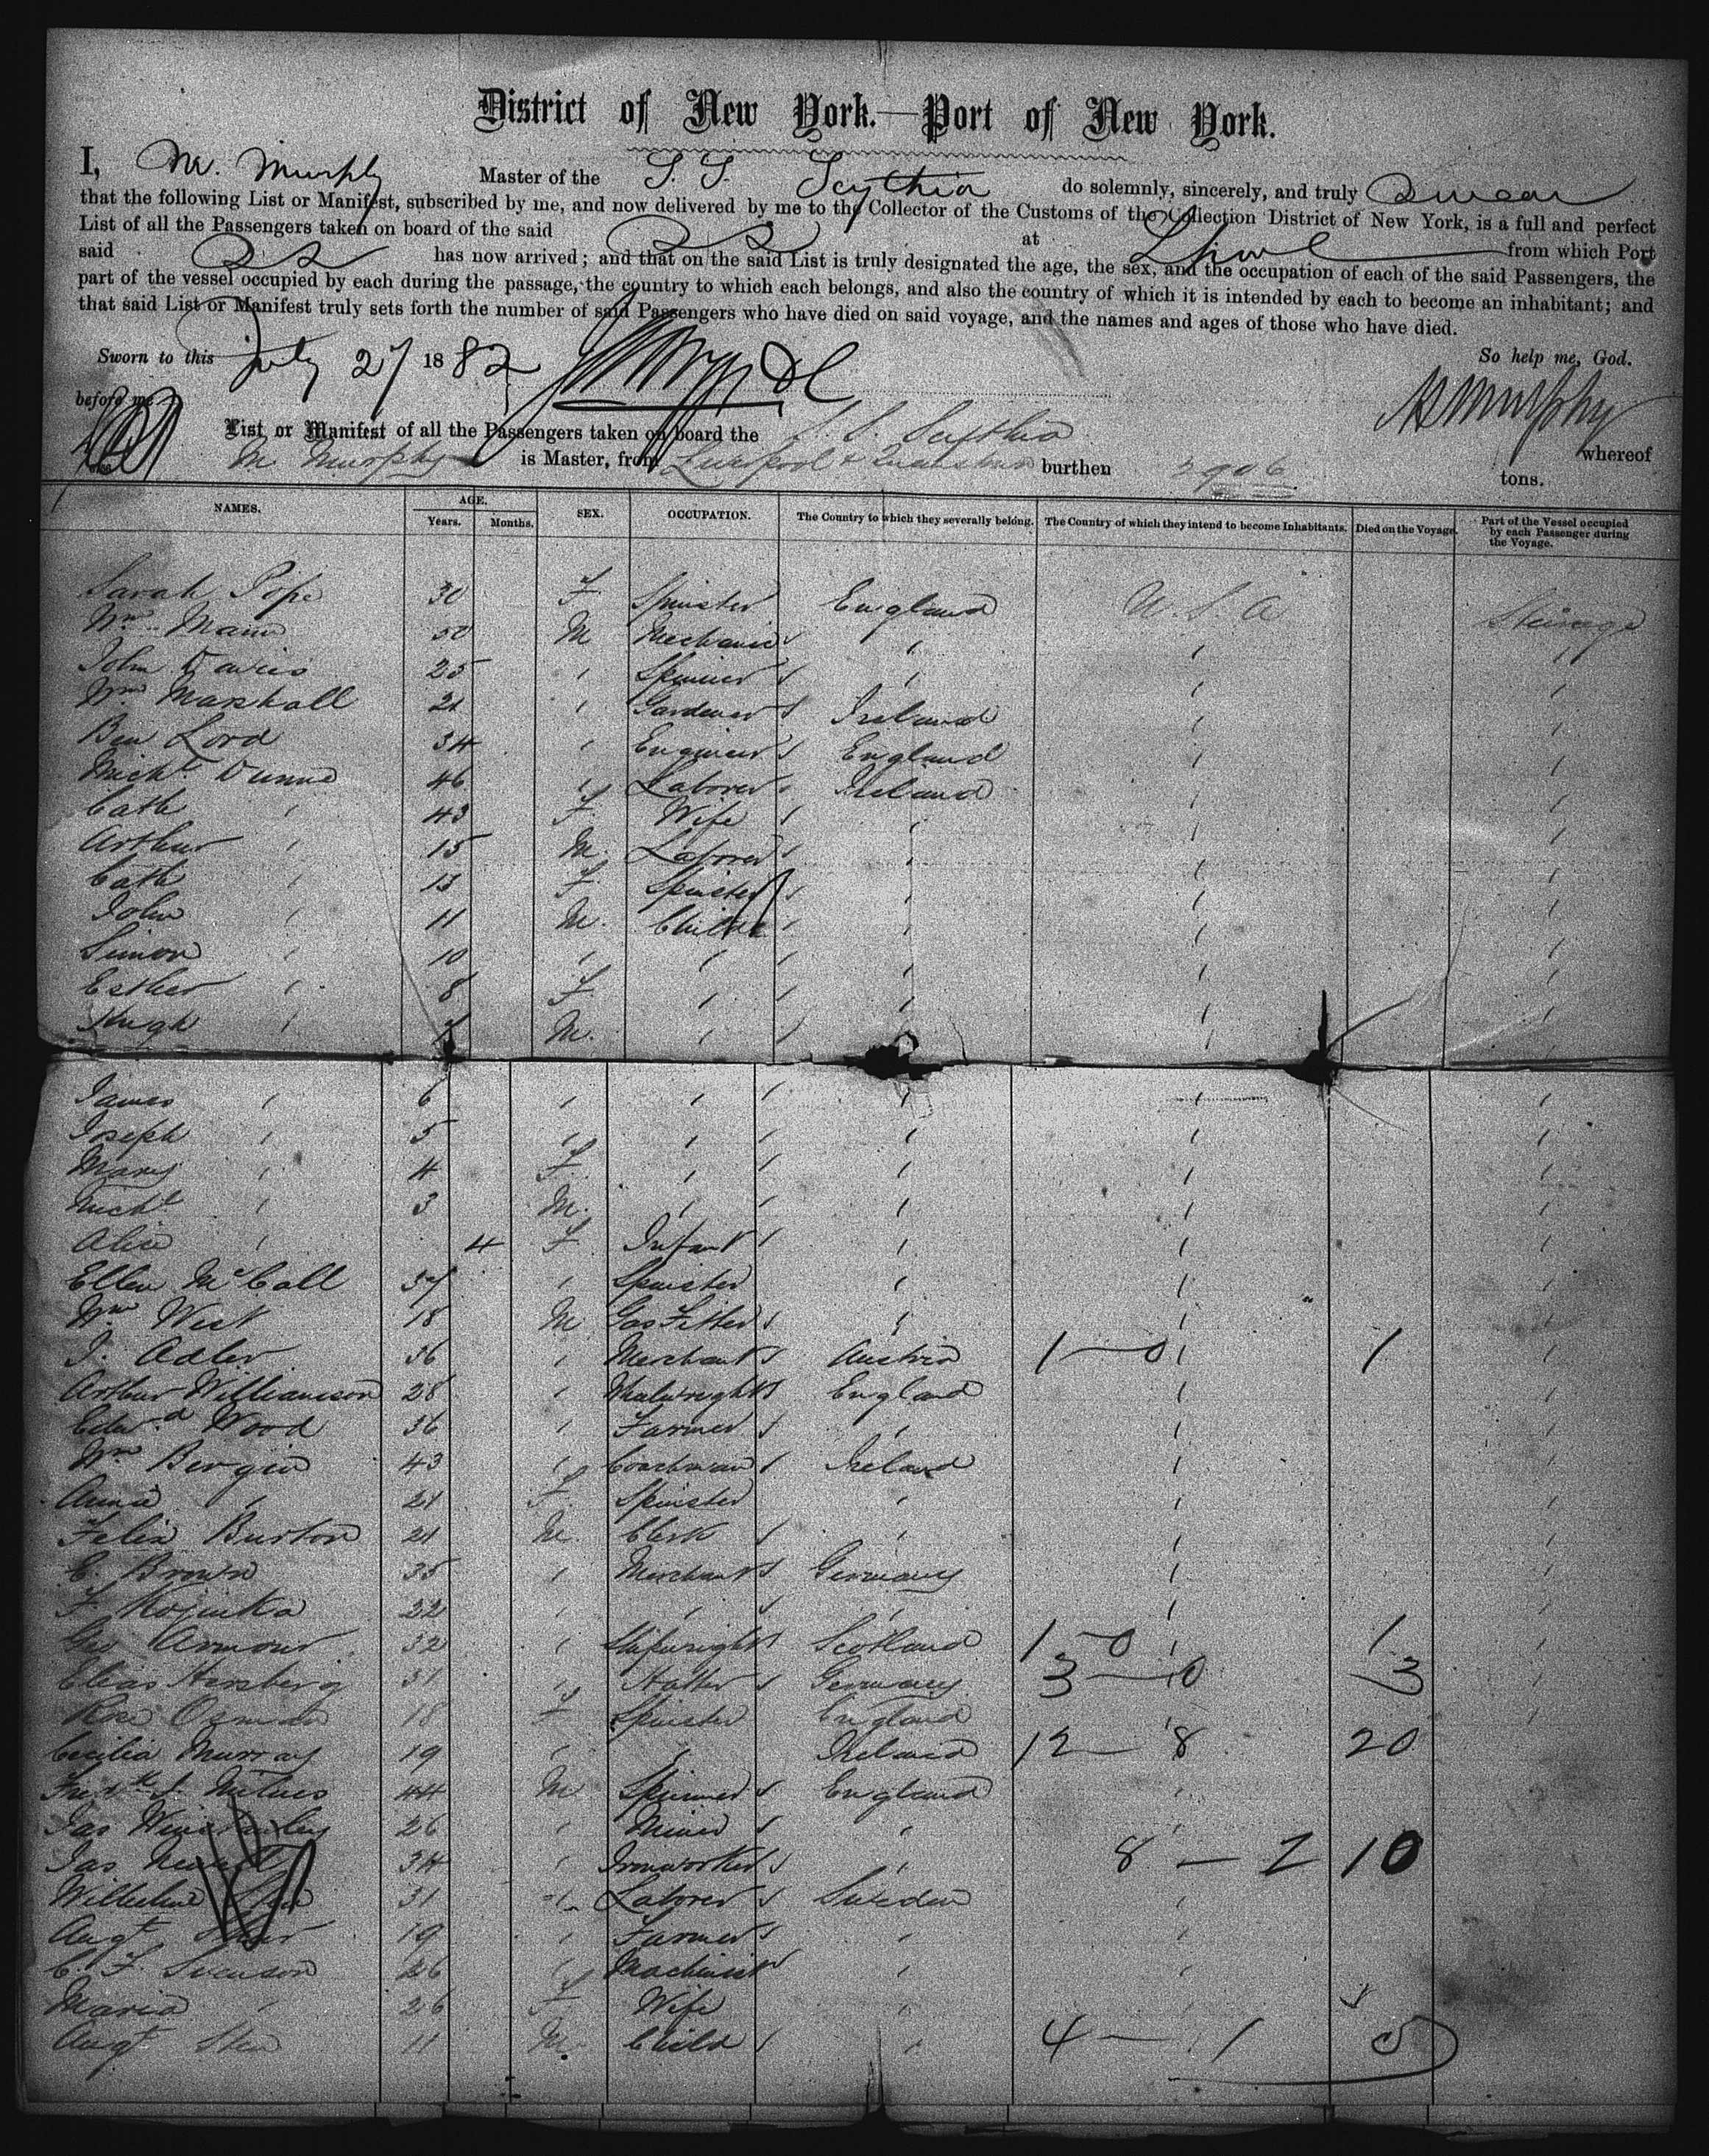 District of New York.—Port of New York.
I, M. Murphy Master of the S. S. Scythia do solemnly, sincerely, and truly swear
that the following List or Manifest, subscribed by me, and now delivered by me to the Collector of the Customs of the Collection District of New York, is a full and perfect
List of all the Passengers taken on board of the said SS at L'pool from which Port
said SS has now arrived; and that on the said List is truly designated the age, the sex, and the occupation of each of the said Passengers, the
part of the vessel occupied by each during the passage, the country to which each belongs, and also the country of which it is intended by each to become an inhabitant; and
that said List or Manifest truly sets forth the number of said Passengers who have died on said voyage, and the names and ages of those who have died.
Sworn to this July 27 1882 So help me, God.
before me M Murphy
List or Manifest of all the Passengers taken on board the S. S. Scythia whereof
M Murphy is Master, from Liverpool & Queenstown burthen 2906 tons.
NAMES. AGE. Years. Months. SEX. OCCUPATION. The Country to which they severally belong. The Country of which they intend to become Inhabitants. Died on the Voyage. Part of the Vessel occupied by each Passenger during the Voyage.
Sarah Pope 30 F. Spinster England U. S. A Steerage
Wm Mann 50 M Mechanic " " "
John Davies 25 " Spinner " " "
Wm Marshall 21 " Gardener Ireland " "
Ben Lord 34 " Engineer England " "
Michl Dunne 46 " Laborer Ireland " "
Cath " 43 F. Wife " " "
Arthur " 15 M. Laborer " " "
Cath " 13 F. Spinster " " "
John " 11 M. Child " " "
Simon " 10 " " " " "
Esther " 8 F. " " " "
Hugh " 7 M. " " " "
James " 6 " " " " "
Joseph " 5 " " " " "
Mary " 4 F. " " " "
Michl " 3 M. " " " "
Alice " 4 F. Infant " " "
Ellen McCall 37 " Spinster " " "
Wm West 18 M Gas Fitter " " "
J. Adler 56 " Merchant Austria 1—0 " 1 "
Arthur Williamson 28 " England " "
Edwd Wood 36 " Farmer " " "
Wm Bergin 43 " Coachman Ireland " "
Anna " 21 F. Spinster " " "
Felix Burton 21 M. Clerk " " "
C. Brown 35 " Merchant Germany " "
F. 22 " " " " "
Geo Armour 32 " Shipwright Scotland 1—0 " 1 "
Elias Hersberg 31 " Hatter Germany 3—0 3 "
Rose 18 F Spinster England " "
Cecilia Murray 19 " " Ireland 12—8 20
Fredk J. Milnes 44 M Spinner England "
Jas Winstanley 26 " Miner " "
Jas 34 " Ironworker " 8—2 10
Wilhelm 31 " Laborer Sweden "
Augt 19 " Farmer " "
C. F. Svenson 26 " Machinist " "
Maria " 26 F. Wife " "
Augt Sten 11 M. Child " 4—1 5